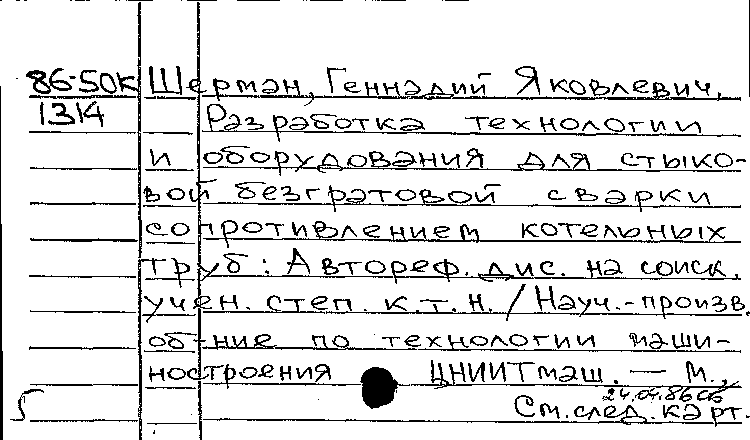 86-50К Шерман, Геннадий Яковлевич.
1314 Разработка технологии
и оборудования для стыко-
вой безгратовой сварки
сопротивлением котельных
труб: Автореф. дис. на соиск.
учен. степ. к.т.н. / Науч.-произв.
об-ние по технологии маши-
ностроения ЦНИИТмаш. — М.,
24.04.86
5 См. след. карт.